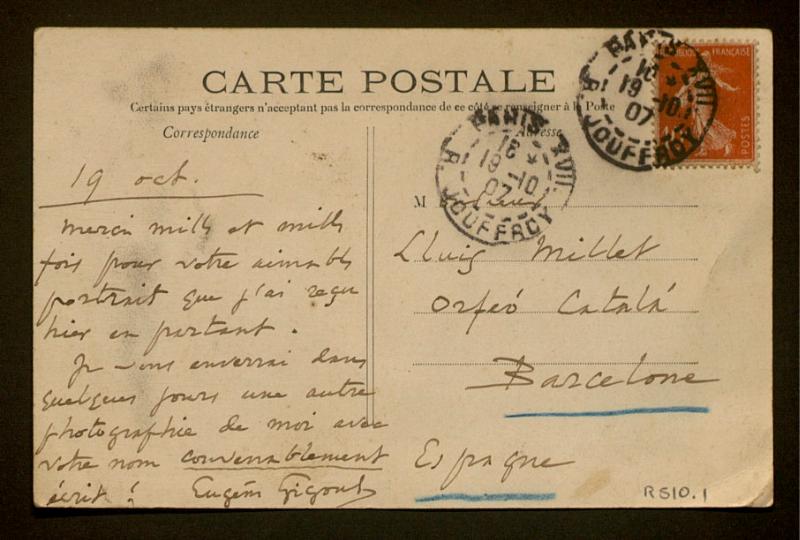 CARTE POSTALE
Certains pays étrangers n'acceptant pas la correspondance de ce côté se renseigner à la Poste
Correspondance
Adresse
19 oct.
Merci mille et mille
fois pour votre aimable
portrait que j'ai reçu
hier en partant.
Je vous enverrai dans
quelques jours une autre
photographie de moi avec
votre nom convenablement
écrit! Eugène Gigout
M
Lluis Millet
Orfeó Catalá
Barcelone
Espagne
PARIS XVII
18
19 -10
07
R. JOUFFROY
PARIS XVII
18
19 -10
07
R. JOUFFROY
FRANÇAISE
POSTES
RS10.1